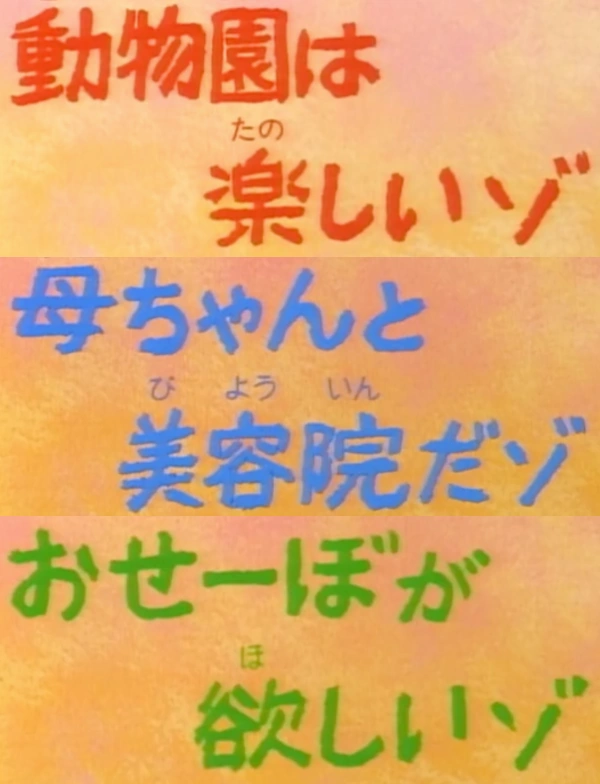 動物園は
たの
楽しいゾ
母ちゃんと
び よう いん
美容院だゾ
おせーぼが
ほ
欲しいゾ